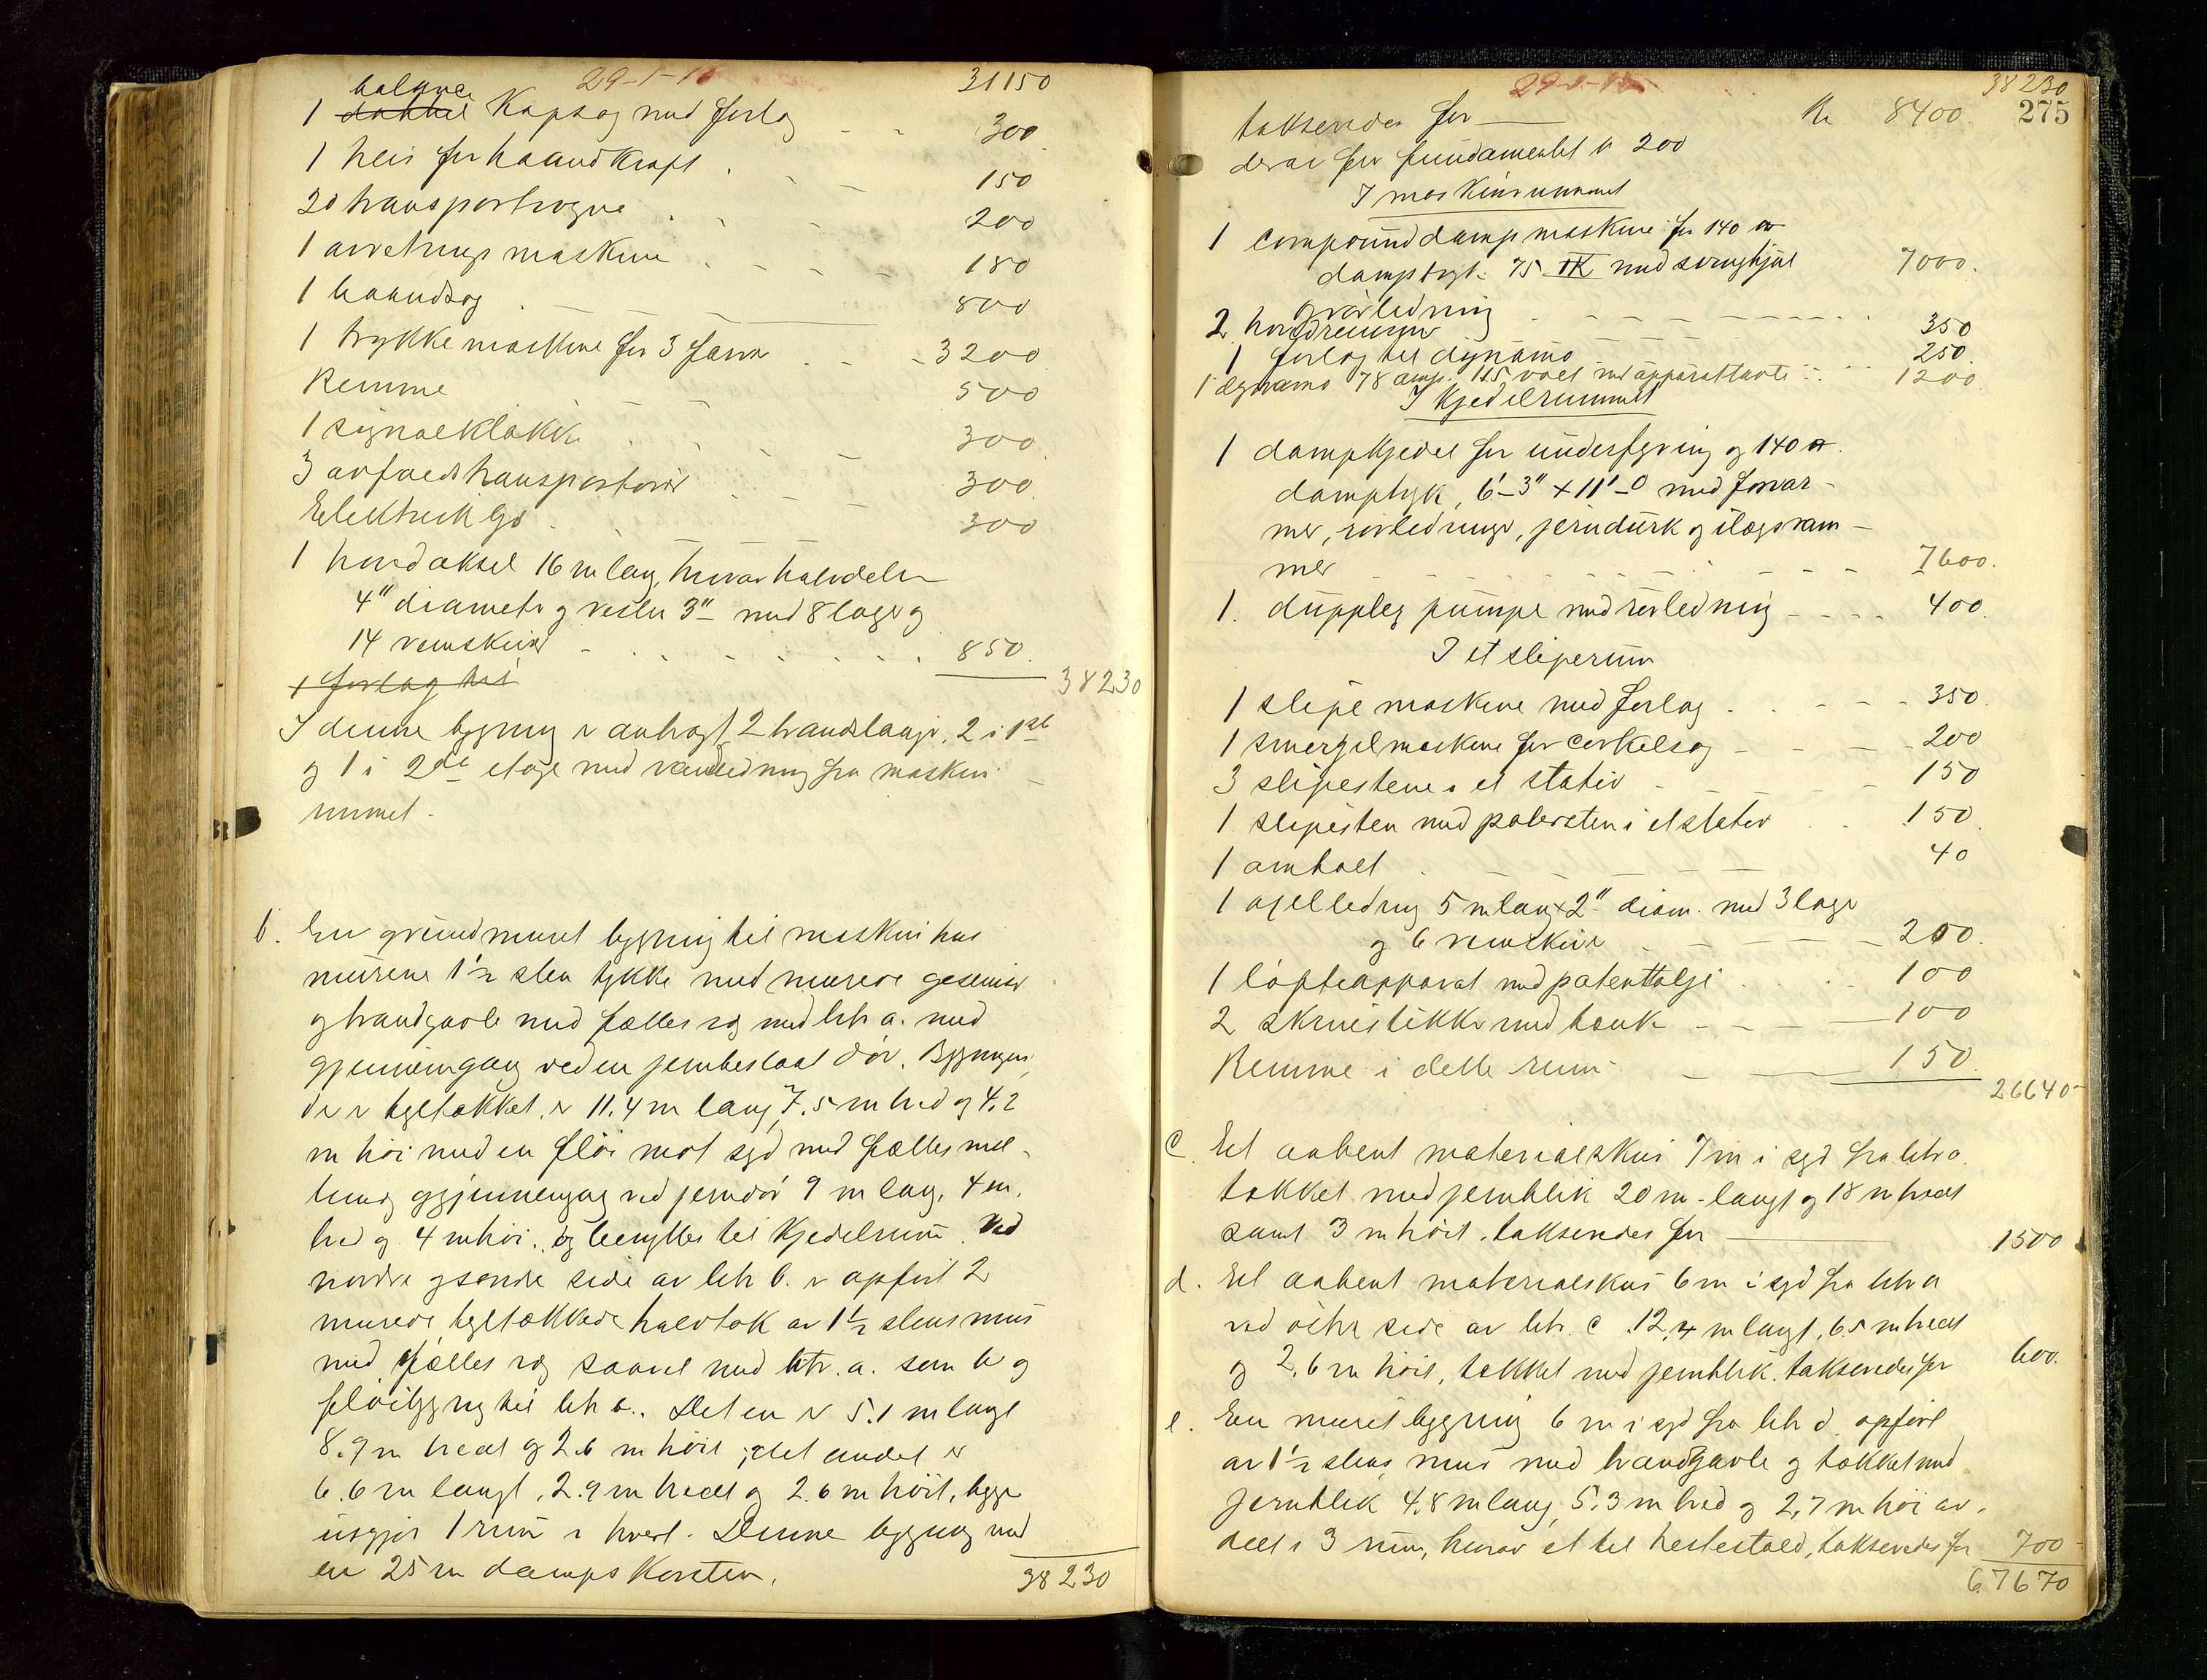 29-1-16
balance 31150
1 dobbel Kapsag med forlag - - 300
1 heis for haandkraft . - - 150
20 transportvogne . . - 200
1 avretnings maskine . - - - 180
1 baandsag . 800
1 trykkemaskine for 3 farver . - - 3200
Remme 500
1 signalklokke . . . 300
3 avfaldstransportører . - - 300
Elektrisk lys - 300
1 hovedaksel 16 m lang, hvorav halvdelen
4" diameter og resten 3" med 8 lager og
14 remskiver - . . . . . . 850.
1 forlag til 38230
I denne bygning er anbragt 2 brandslanger, 2 i 1ste
og 1 i 2den etage med vandledning fra maskin-
rummet.
b. En grundmuret bygning til maskinhus
murene 1½ sten tykke med murede gesimser
og brandgavle med fælles væg med litr a. med
gjennemgang ved en jernbeslaat dør. Bygningen,
der er tegltækket, er 11.4 m lang, 7.5 m bred og 4.2
m høi med en fløi mot syd med fælles mel-
lemvæg og gjennemgang ved jerndør 9 m lang, 4 m.
bred og 4 m høi, og benyttes til Kjedelrum. Ved
nordre og søndre side av litr b. er opført 2
murede tegltækkede halvtak av 1½ stens mur
med fælles væg saavel med litr. a. som b og
fløibygning til litr b.. Det ene er 5.1 m langt
8.9 m bredt og 2.6 m høit; det andet er
6.6 m langt, 2.9 m bredt og 2.6 m høit, begge
utgjør 1 rum i hvert. Denne bygning med
en 25 m dampskorsten, 38230
29-1-16 38230
takseredes for Kr 8400. 275
derav for fundamentet kr 200
I maskinrummet
1 compound dampmaskine for 140 #
damptryk 75 IK med svinghjul
og rørledning 7000.
2 hovedremmer 350
1 forlag til dynamo 250.
1 dynamo 78 amp. 115 volt med apparattavle . . 1200.
I Kjedelrummet
1 dampkjedel for underfyring og 140 #.
damptryk, 6'-3" x 11'-0 med forvar-
mer, rørledninger, jerndørk og ilægsram-
mer 7600.
1. dupplex pumpe med rørledning - - - - 400.
I et sliperum
1 slipemaskine med forlag . . - - - 350.
1 smergelmaskine for cirkelsag - - - 200
3 slipestene i et stativ - - - 150
1 slipesten med polersten i et stativ . . 150.
1 ambolt . 40
1 axelledning 5 m lang x 2" diam. med 3 lager
og 6 remskiver . - - - 200.
1 løfteapparat med patenttalje . . . . 100
2 skruestikker med bænk - - - 100
Remme i dette rum - 150.
26640-
c. Et aabent materialskur 7 m i syd fra litr a.
tækket med jernblik 20 m-langt og 18 m bredt
samt 3 m høit, takseredes for 1500
d. Et aabent materialskur 6 m i syd fra litr a
ved østre side av litr. c 12,4 m langt, 6.5 m bredt
og 2,6 m høit, tækket med jernblik. takseredes for 600.
e. En muret bygning 6 m i syd fra litr d. opført
av 1½ stens mur med brandgavle og tækket med
jernblik 4.8 m lang, 5,3 m bred og 2,7 m høi av-
delt i 3 rum, hvorav et til hestestald, takseredes for 700-
67670